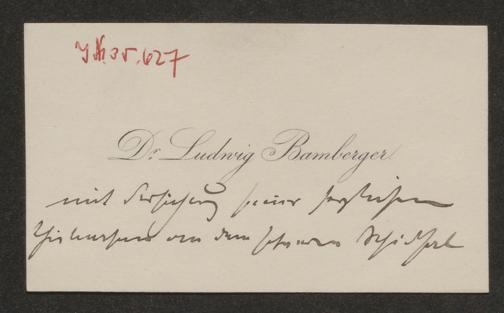 J.N. 35.627
Dr. Ludwig Bamberger
mit Versicherung seiner herzlichen
Theilnahme an dem schweren Schicksal